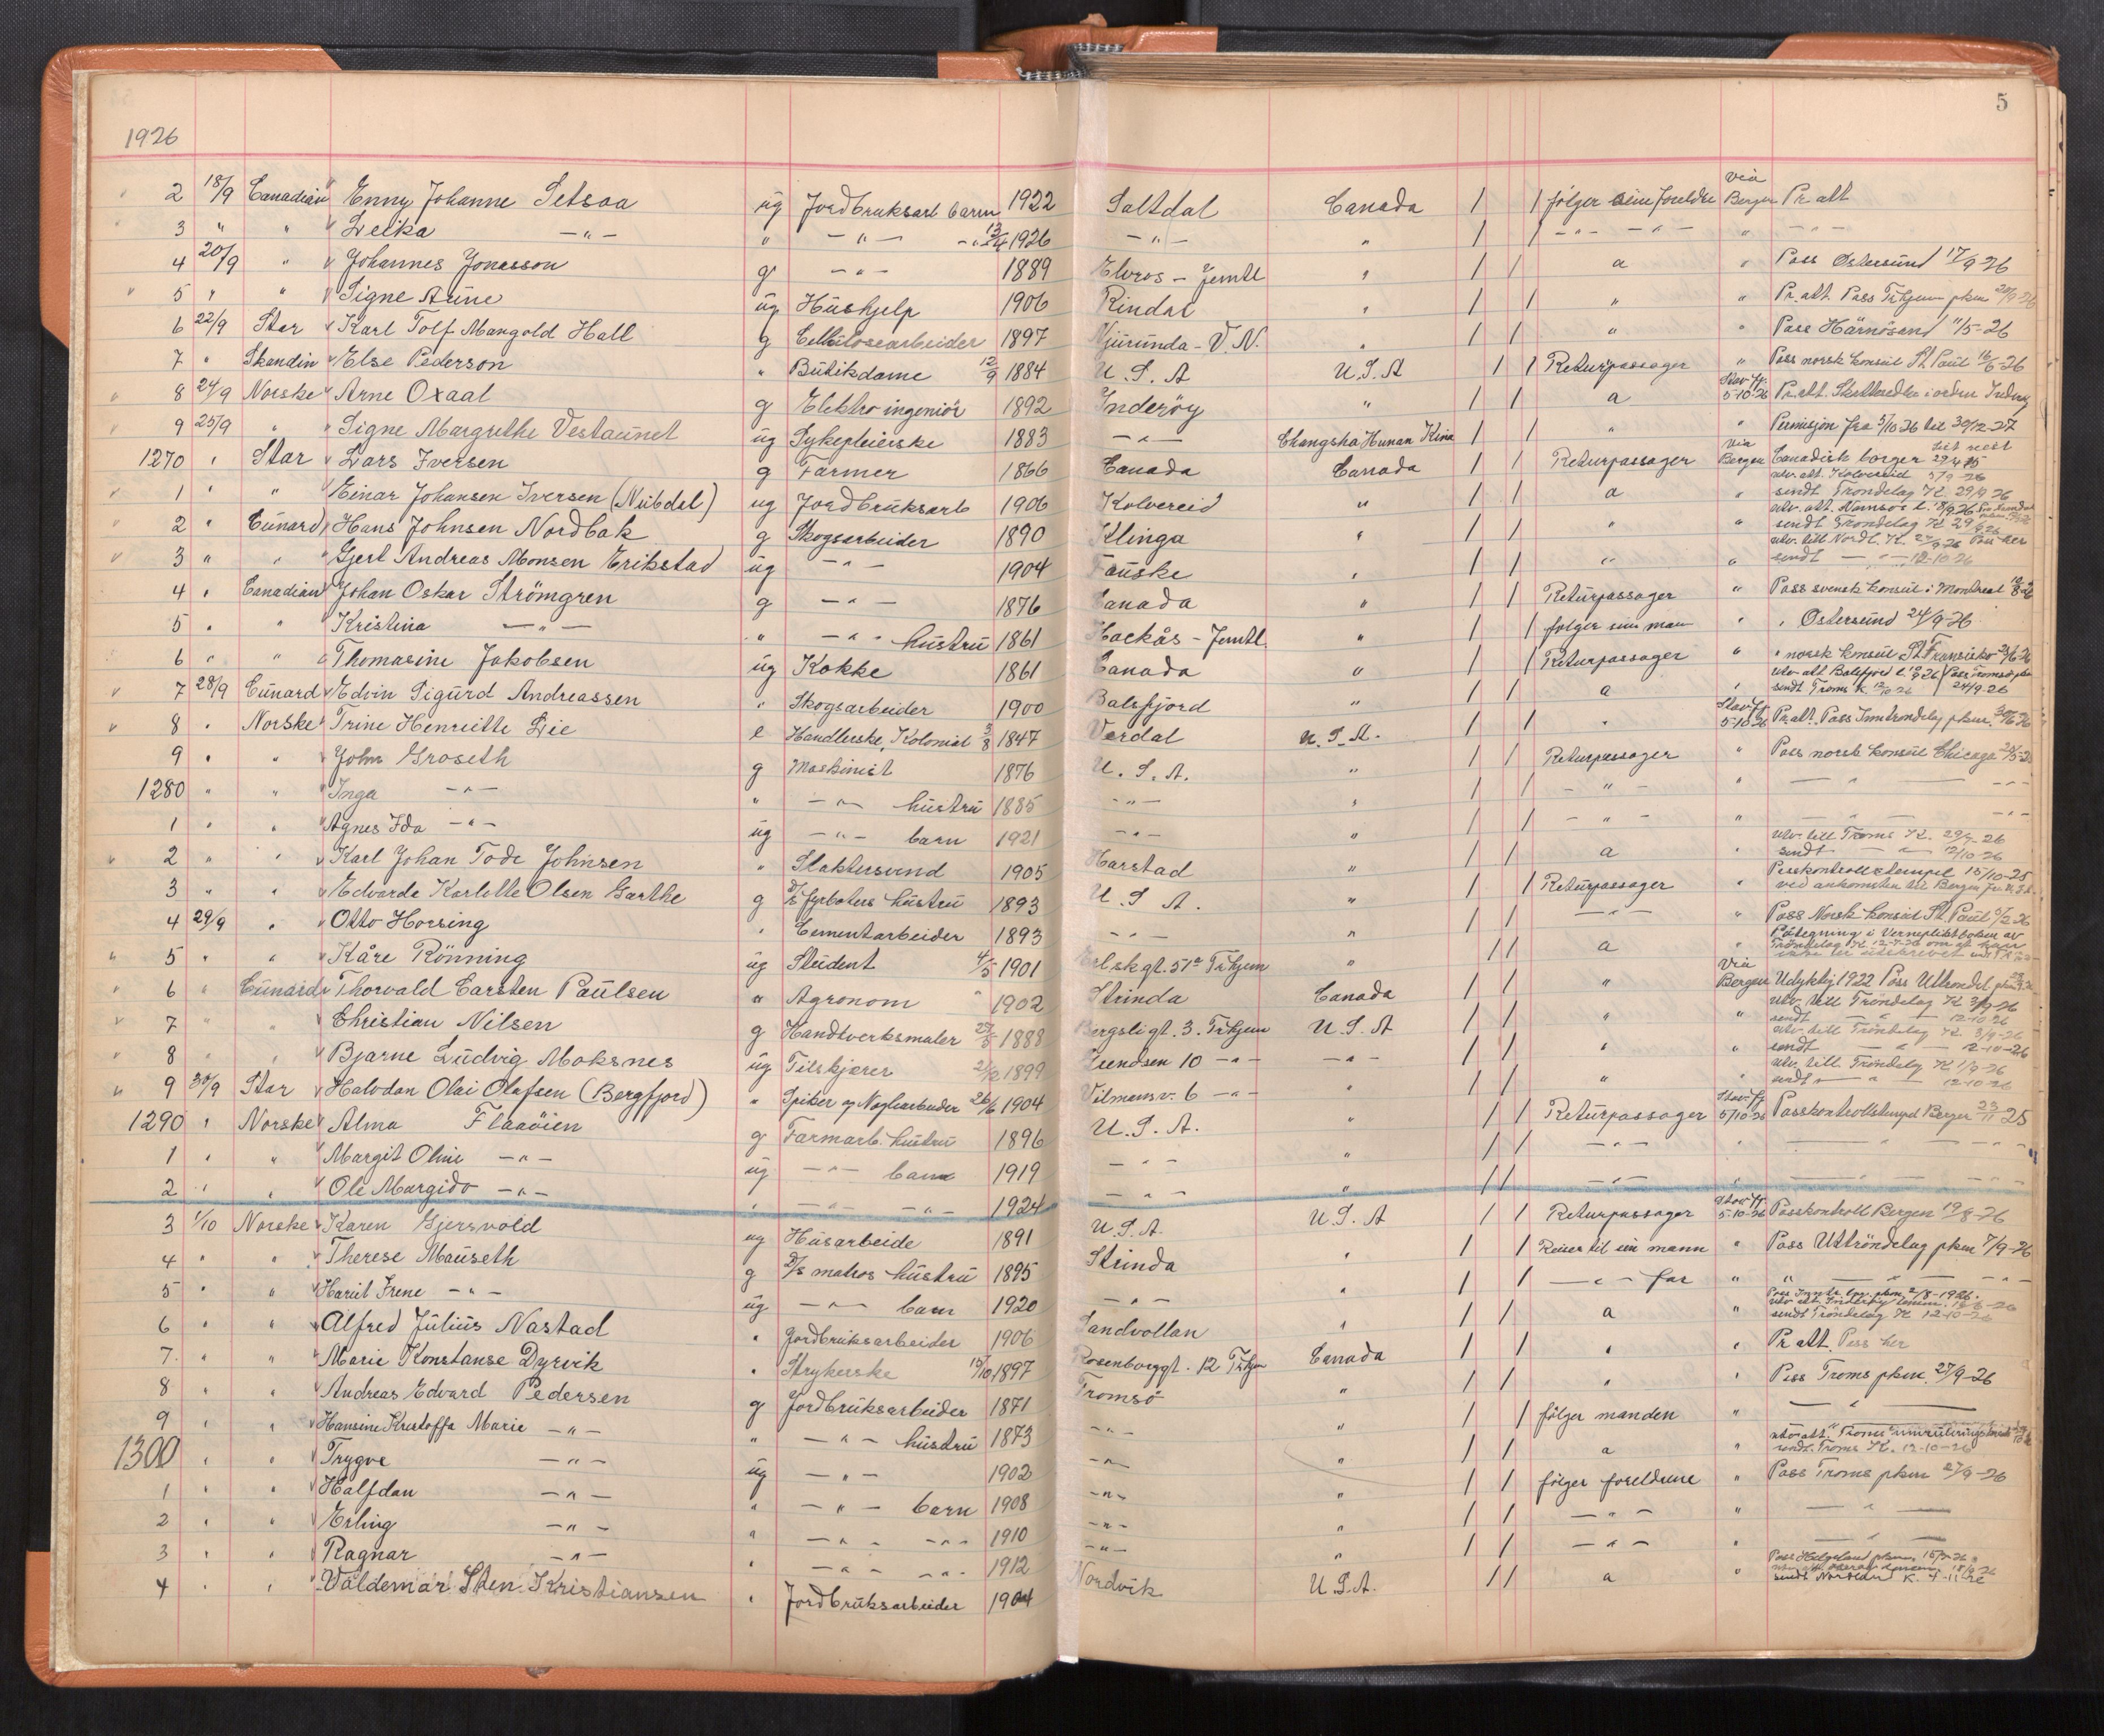 5
1926
2 18/9 Canadian Enny Johanne Setsaa ug Jordbruksarb barn 1922 Saltdal Canada 1 1 følger sine foreldre via Bergen Pr att
3 " " Leika -"- " -"- -"- 13/4 1926 -"- " 1 1 -"- -"- " -"-
4 20/9 " Johannes Jonasson g -"- 1889 Elvros - Jemtl " 1 1 a " Pass Østersund 17/9-26
5 " " Signe Aune ug Hushjelp 1906 Rindal " 1 1 " " Pr. att. Pass Trhjem pkm 20/9-26
6 22/9 Star Karl Tolf Mangold Hall g Cellulosearbeider 1897 Njurunda - V.N. " 1 1 " " Pass Härnösand 11/5-26
7 " Skandin Else Pederson " Butikdame 12/9 1884 U.S.A U.S.A 1 1 Returpassager " Pass norsk konsul St Paul 16/6-26
8 24/9 Norske Arne Oxaal g Elektro ingeniör 1892 Inderöy " 1 1 a Stav.fj. 5-10-26 Pr. att. Skattesedler i orden Inderøy
9 25/9 " Signe Margrethe Vestaunet ug Sykepleierske 1883 -"- Changsha Hunan Kina 1 1 " " Permisjon fra 5/10-26 til 30/12-27
1270 " Star Lars Iversen g Farmer 1866 Canada Canada 1 1 Returpassager via Bergen Canadisk borger 29/4 15
1 " " Einar Johansen Iversen (Nubdal) ug Jordbruksarb 1906 Kolvereid " 1 1 a " utv. att. Kolvereid 5/9-26
sendt Trøndelag K. 29/9 26
2 " Cunard Hans Johnsen Nordbak g Skogsarbeider 1890 Klinga " 1 1 " " utv. att. Namsos l. 18/9 26
sendt Trøndelag K 29/9 26
3 " " Gjert Andreas Monsen Erikstad ug -"- 1904 Fauske " 1 1 " " utv. till Nordl. K. 27/9-26 Pass her
sendt -"- 12-10-26
4 " Canadian Johan Oskar Strömgren g -"- 1876 Canada " 1 1 Returpassager " Pass svensk konsul i Montreal
5 " " Kristina -"- " -"- hustru 1861 Hackås - Jemtl. " 1 1 følger sin man " " Østersund 24/9-26
6 " " Thomasine Jakobsen ug Kokke 1861 Canada " 1 1 Returpassager " " norsk konsul St Fransisko
7 28/9 Cunard Edvin Sigurd Andreassen " Skogsarbeider 1900 Balsfjord " 1 1 a " utv att Balsfjord l. Pass Tromsø pkm
sendt Troms K 24/9-26
8 " Norske Trine Henriette Lie e Handlerske, Kolonial 3/8 1847 Verdal U.S.A. 1 1 " Stav.fj. 5-10-26 Pr. att. Pass Inntrøndelag pkm.
9 " " John Groseth g Maskinist 1876 U.S.A. " 1 1 Returpassager " Pass norsk konsul Chicago
1280 " " Inga -"- " -"- hustru 1885 -"- " 1 1 -"- " -"- -"-
1 " " Agnes Ida -"- ug -"- barn 1921 -"- " 1 1 -"- " -"- -"-
2 " " Karl Johan Tode Johnsen " Slaktersvend 1905 Harstad " 1 1 a " utv. till Troms K. 29/9-26
sendt -"- 12/10-26
3 " " Edvarda Karlotte Olsen Garthe g D/S fyrbøters hustru 1893 U.S.A. " 1 1 Returpassager " Passkontrollstempel 15/10-25
ved ankomsten til Bergen fra U.S.A.
4 29/9 " Otto Horsing " Cementarbeider 1893 -"- " 1 1 -"- " Pass Norsk konsul St. Paul
5 " " Kåre Rönning ug Student 4/5 1901 51a Trhjem " 1 1 a " Påtegning i Vernepliktsboken av
Trøndelag K 12-7-26 om at han
6 " Cunard Thorvald Carsten Paulsen " Agronom " 1902 Strinda Canada 1 1 " via Bergen Udyktig 1922 Pass Uttrøndel.
7 " " Christian Nilsen g Handtverksmaler 1888 Bergsligt. 3. Trhjem U.S.A 1 1 " " utv. till Trøndelag K 3/9-26
sendt -"- 12-10 26
8 " " Bjarne Ludvig Moksnes ug Tilskjærer 1899 10 -"- -"- 1 1 " " utv. till Trøndelag K. 3/9-26
sendt -"- 12-10-26
9 30/9 Star Halvdan Olai Olafsen (Bergfjord) " Spiker og Naglearbeider 26/6 1904 Vilmansv. 6 -"- " 1 1 " " utv. till Trøndelag K 1/9-26
sendt -"- 12-10-26
1290 " Norske Alma Flaaöien g Farmarb. hustru 1896 U.S.A. " 1 1 Returpassager Stav.fj. 5/10-26 Passkontrollstempel Bergen 23/11-25
1 " " Margit Oline -"- ug -"- barn 1919 -"- " 1 1 -"- " -"- -"-
2 " " Ole Margido -"- " -"- -"- 1924 -"- " 1 1 -"- " -"- -"-
3 1/10 Norske Karen Gjersvold ug Husarbeide 1891 U.S.A. U.S.A 1 1 Returpassager Stav.fj. 5-10-26 Passkontroll Bergen 19/8-26
4 " " Therese Mauseth g D/S matros hustru 1895 Strinda " 1 1 Reiser til sin mann " Pass Uttröndelag pkm 7/9-26
5 " " Harut Irene -"- ug -"- barn 1920 -"- " 1 1 -"- far " " -"- -"-
6 " " Alfred Julius Nastad " Jordbruksarbeider 1906 Sandvollan " 1 1 a " Pass Inntr. pkm. 2/8-1926.
sendt Trøndelag K 12-10-26
7 " " Marie Konstanse Dyrvik " Strykerske 15/10 1897 Rosenborggt. 12 Trhjem Canada 1 1 " " Pr att. Pass her
8 " " Andreas Edvard Pedersen g Jordbruksarbeider 1871 Tromsö " 1 1 " " Pass Troms pkm. 27/9-26
9 " " Hansine Kristoffa Marie -"- " -"- hustru 1873 -"- " 1 1 følger manden " -"-
1300 " " Trygve -"- ug -"- 1902 -"- " 1 1 a " utv. att. Troms
sendt. Troms K. 12-10-26
1 " " Halfdan -"- " -"- barn 1908 -"- " 1 1 følger foreldrene " Pass Troms pkm 27/9-26
2 " " Erling -"- " -"- -"- 1910 -"- " 1 1 -"- " -"-
3 " " Ragnar -"- " -"- -"- 1912 -"- " 1 1 -"- " -"-
4 " " Valdemar Sten Kristiansen " Jordbruksarbeider 1904 Nordvik U.S.A. 1 1 a " Pass Helgeland pkm.
sendt Nordland K. 4-11-26